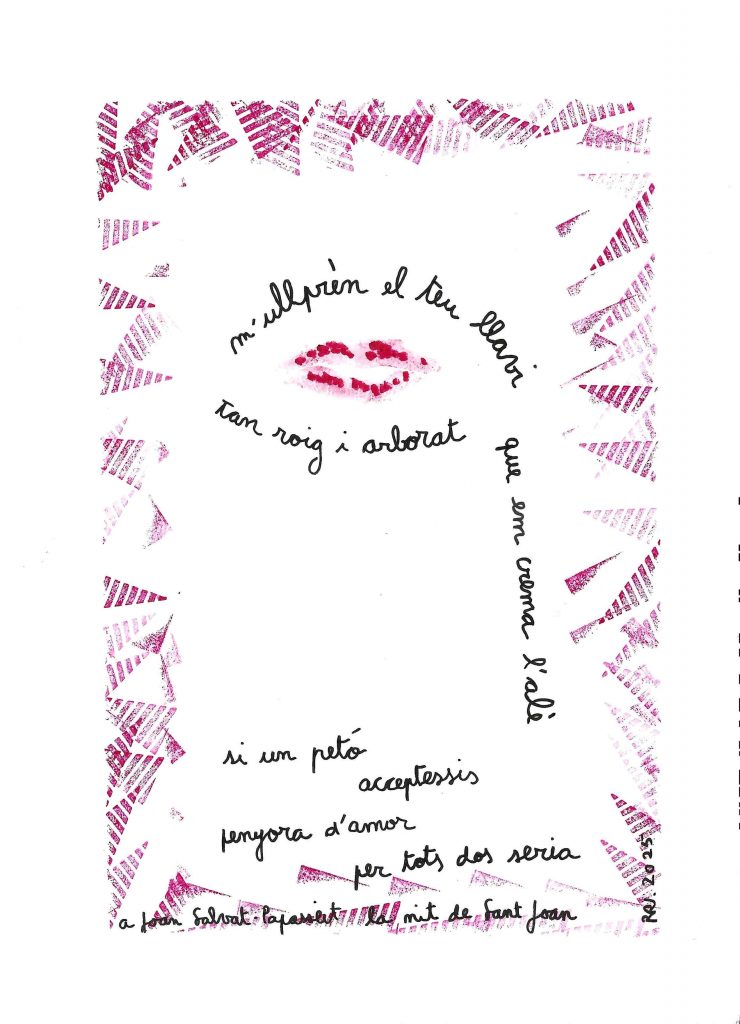 m'ullprèn el teu llavi
tan roig i arborat
que em crema l'alè
si un petó
acceptessis
penyora d'amor
per tots dos seria
a Joan Salvat-Papasseit la nit de Sant Joan
2025